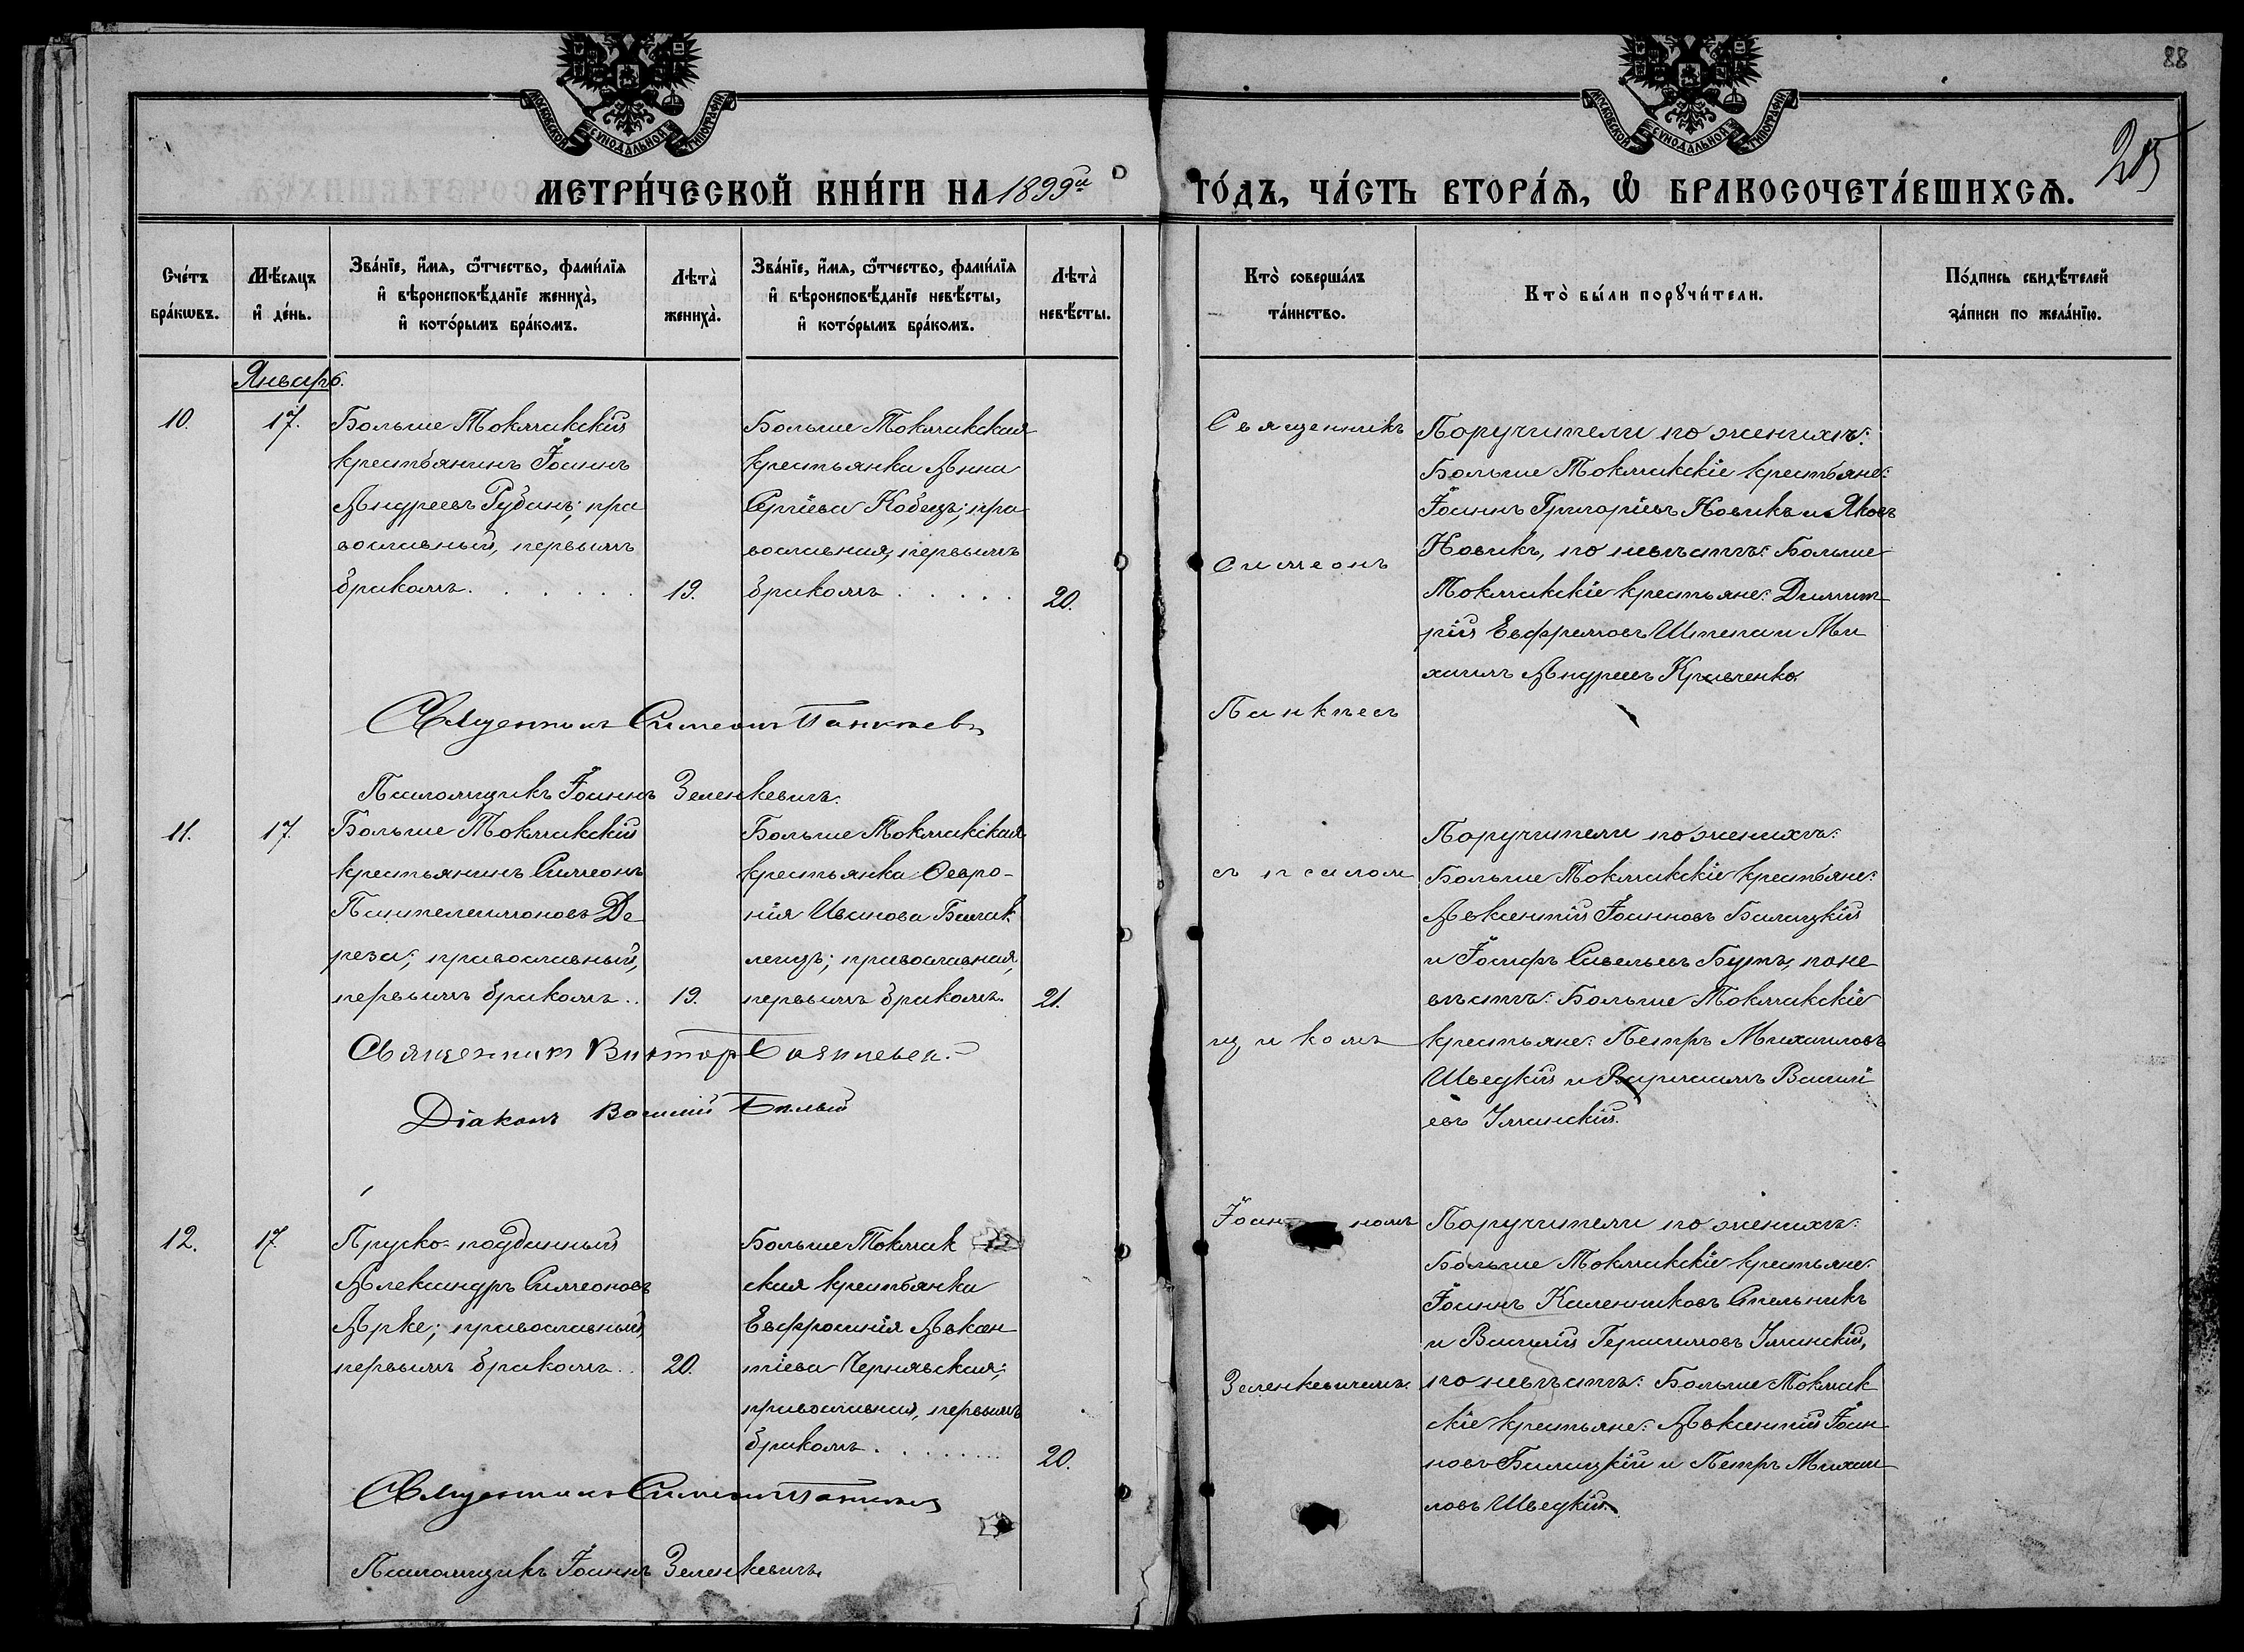 88
205
МОСКОВСКОЙ СУНОДАЛЬНОЙ ТИПОГРАФІИ
МОСКОВСКОЙ СУНОДАЛЬНОЙ ТИПОГРАФІИ
МЕТРИ́ЧЕСКОЙ КНИ́ГИ НА 1899й ГО́ДЪ, ЧА́СТЬ ВТОРА́Я, Ѡ БРАКОСОЧЕТА́ВШИХСЯ.
Сче́тъ бра́кѡвъ.
Мѣ́сяцъ и҆ де́нь.
Зва́нїе, и҆́мя, ѻ҆́тчество, фами́лїя и҆ вѣроисповѣ́данїе жениха̀, и҆ кото́рымъ бра́комъ.
Лѣта̀ жениха̀.
Зва́нїе, и҆́мя, ѻ҆́тчество, фами́лїя и҆ вѣроисповѣ́данїе невѣ́сты, и҆ кото́рымъ бра́комъ.
Лѣта̀ невѣ́сты.
Кто̀ соверша́лъ та́инство.
Кто̀ бы́ли порꙋчи́тели.
По́дпись свидѣ́телей за́писи по жела́нїю.
Январь.
10.
17.
Больше Токмакскій
крестьянинъ Іоаннъ
Андреевъ Рубанъ; пра
вославный, первымъ
бракомъ.
19.
Больше Токмакская
крестьянка Анна
Сергіева Кобецъ; пра
вославная, первымъ
бракомъ
20.
Священникъ
Симеонъ
Панктевъ
Поручители по женихѣ:
Больше Токмакскіе крестьяне:
Іоаннъ Григоріевъ Новикъ и Яковъ
Новикъ, по невѣстѣ: Больше
Токмакскіе крестьяне: Димит
рій Евфремовъ Штепа и Ми
хаилъ Андреевъ Кравченко.
Священникъ Симеонъ
Псаломщикъ Іоаннъ Зеленкевичъ.
11.
17.
Больше Токмакскій
крестьянинъ Симеонъ
Пантелеимоновъ Де
реза; православный,
первымъ бракомъ..
19.
Больше Токмакская
крестьянка Февро-
нія Иванова Балак
лецъ; православная,
первымъ бракомъ.
21.
съ псалом
щикомъ
Поручители по женихѣ:
Больше Токмакскіе крестьяне:
Авксентій Іоанновъ Билицкій
и Іосифъ Савельевъ Бутъ, по не
вѣстѣ: Больше Токмакскіе
крестьяне: Петръ Михаиловъ
Шведкій и Варлаамъ Васили
евъ Уманскій.
Священникъ Викторъ
Діаконъ Василій Билый
12.
17.
Пруско-подданный
Александръ Симеоновъ
Арке; православный,
первымъ бракомъ..
20.
Больше Токмак
ская крестьянка
Евфросинія Авксен
тіева Чернявская;
православная, первымъ
бракомъ
20.
Іоанномъ
Зеленкевичемъ.
Поручители по женихѣ:
Больше Токмакскіе крестьяне:
Іоаннъ Каленниковъ Стельникъ
и Василій Герасимовъ Уманскій,
по невѣстѣ: Больше Токмак
скіе крестьяне: Авксентій Іоан
новъ Билицкій и Петръ Михаи
ловъ Шведкій.
Священникъ Симеонъ
Псаломщикъ Іоаннъ Зеленкевичъ.